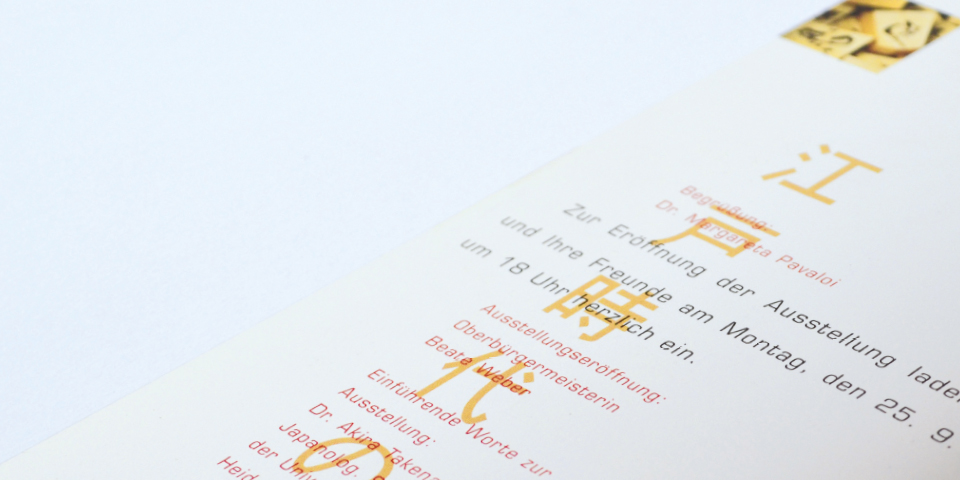 江戸時代の
Begrüßung:
Dr. Margareta Pavaloi
Zur Eröffnung der Ausstellung
und Ihre Freunde am Montag, den 25. 9.
um 18 Uhr herzlich ein.
Ausstellungseröffnung:
Oberbürgermeisterin
Beate Weber
Einführende Worte zur
Ausstellung:
Dr. Akira
Japanolog.
der